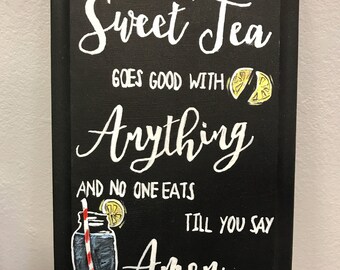 Sweet Tea
GOES GOOD WITH
Anything
AND NO ONE EATS
TILL YOU SAY
Amen